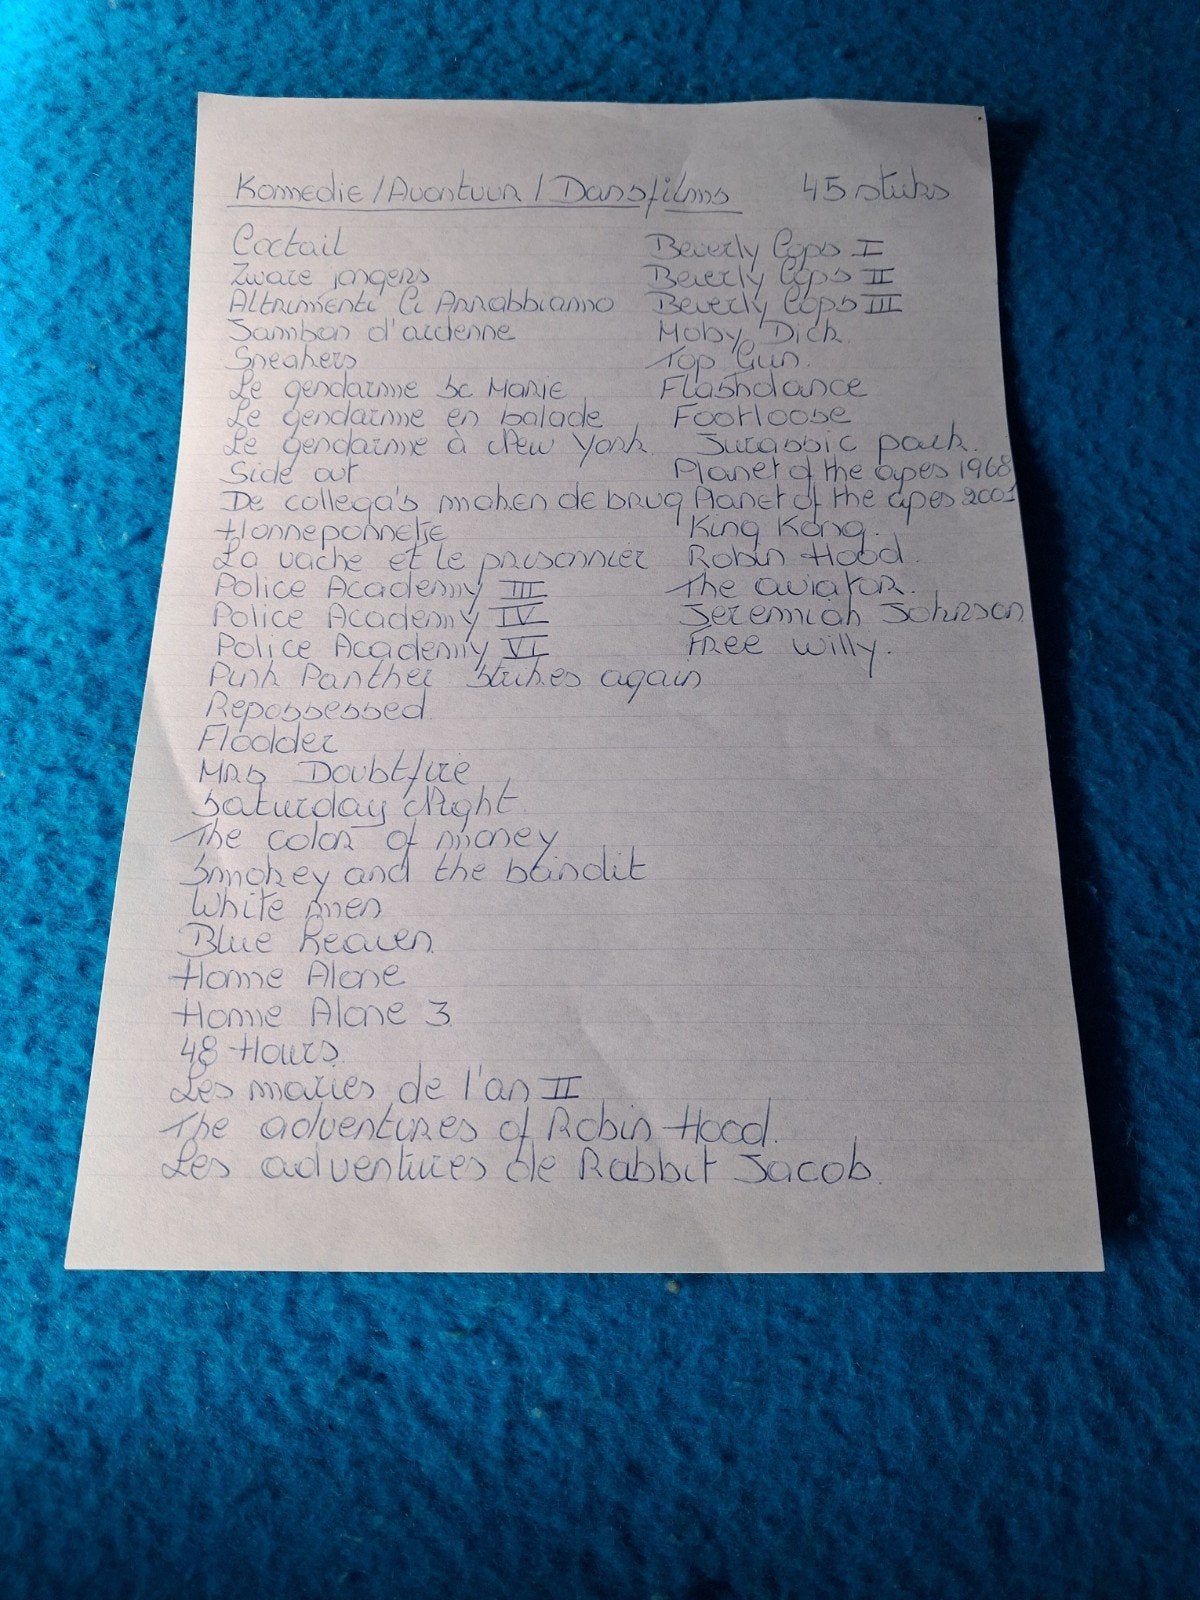 Komedie / Avontuur / Dansfilms 45 stuks
Coctail
Zware jongens
Altrimenti Ci Arrabbiamo
Jambon d'ardenne
Sneakers
Le gendarme se Marie
Le gendarme en balade
Le gendarme à New York
Side out
De collega's maken de brug
Honneponnetje
La vache et le prisonnier
Police Academy III
Police Academy IV
Police Academy VI
Pink Panther strikes again
Repossessed
Flodder
Mrs Doubtfire
Saturday Night
The color of money
Smokey and the bandit
White men
Blue heaven
Home Alone
Home Alone 3
48 Hours
Les maries de l'an II
The adventures of Robin Hood.
Les adventures de Rabbit Jacob.
Beverly Cops I
Beverly Cops II
Beverly Cops III
Moby Dick.
Top Gun.
Flashdance
Footloose
Jurassic park.
Planet of the apes 1968
Planet of the apes 2001
King Kong.
Robin Hood.
The aviator.
Jeremiah Johnson
Free willy.